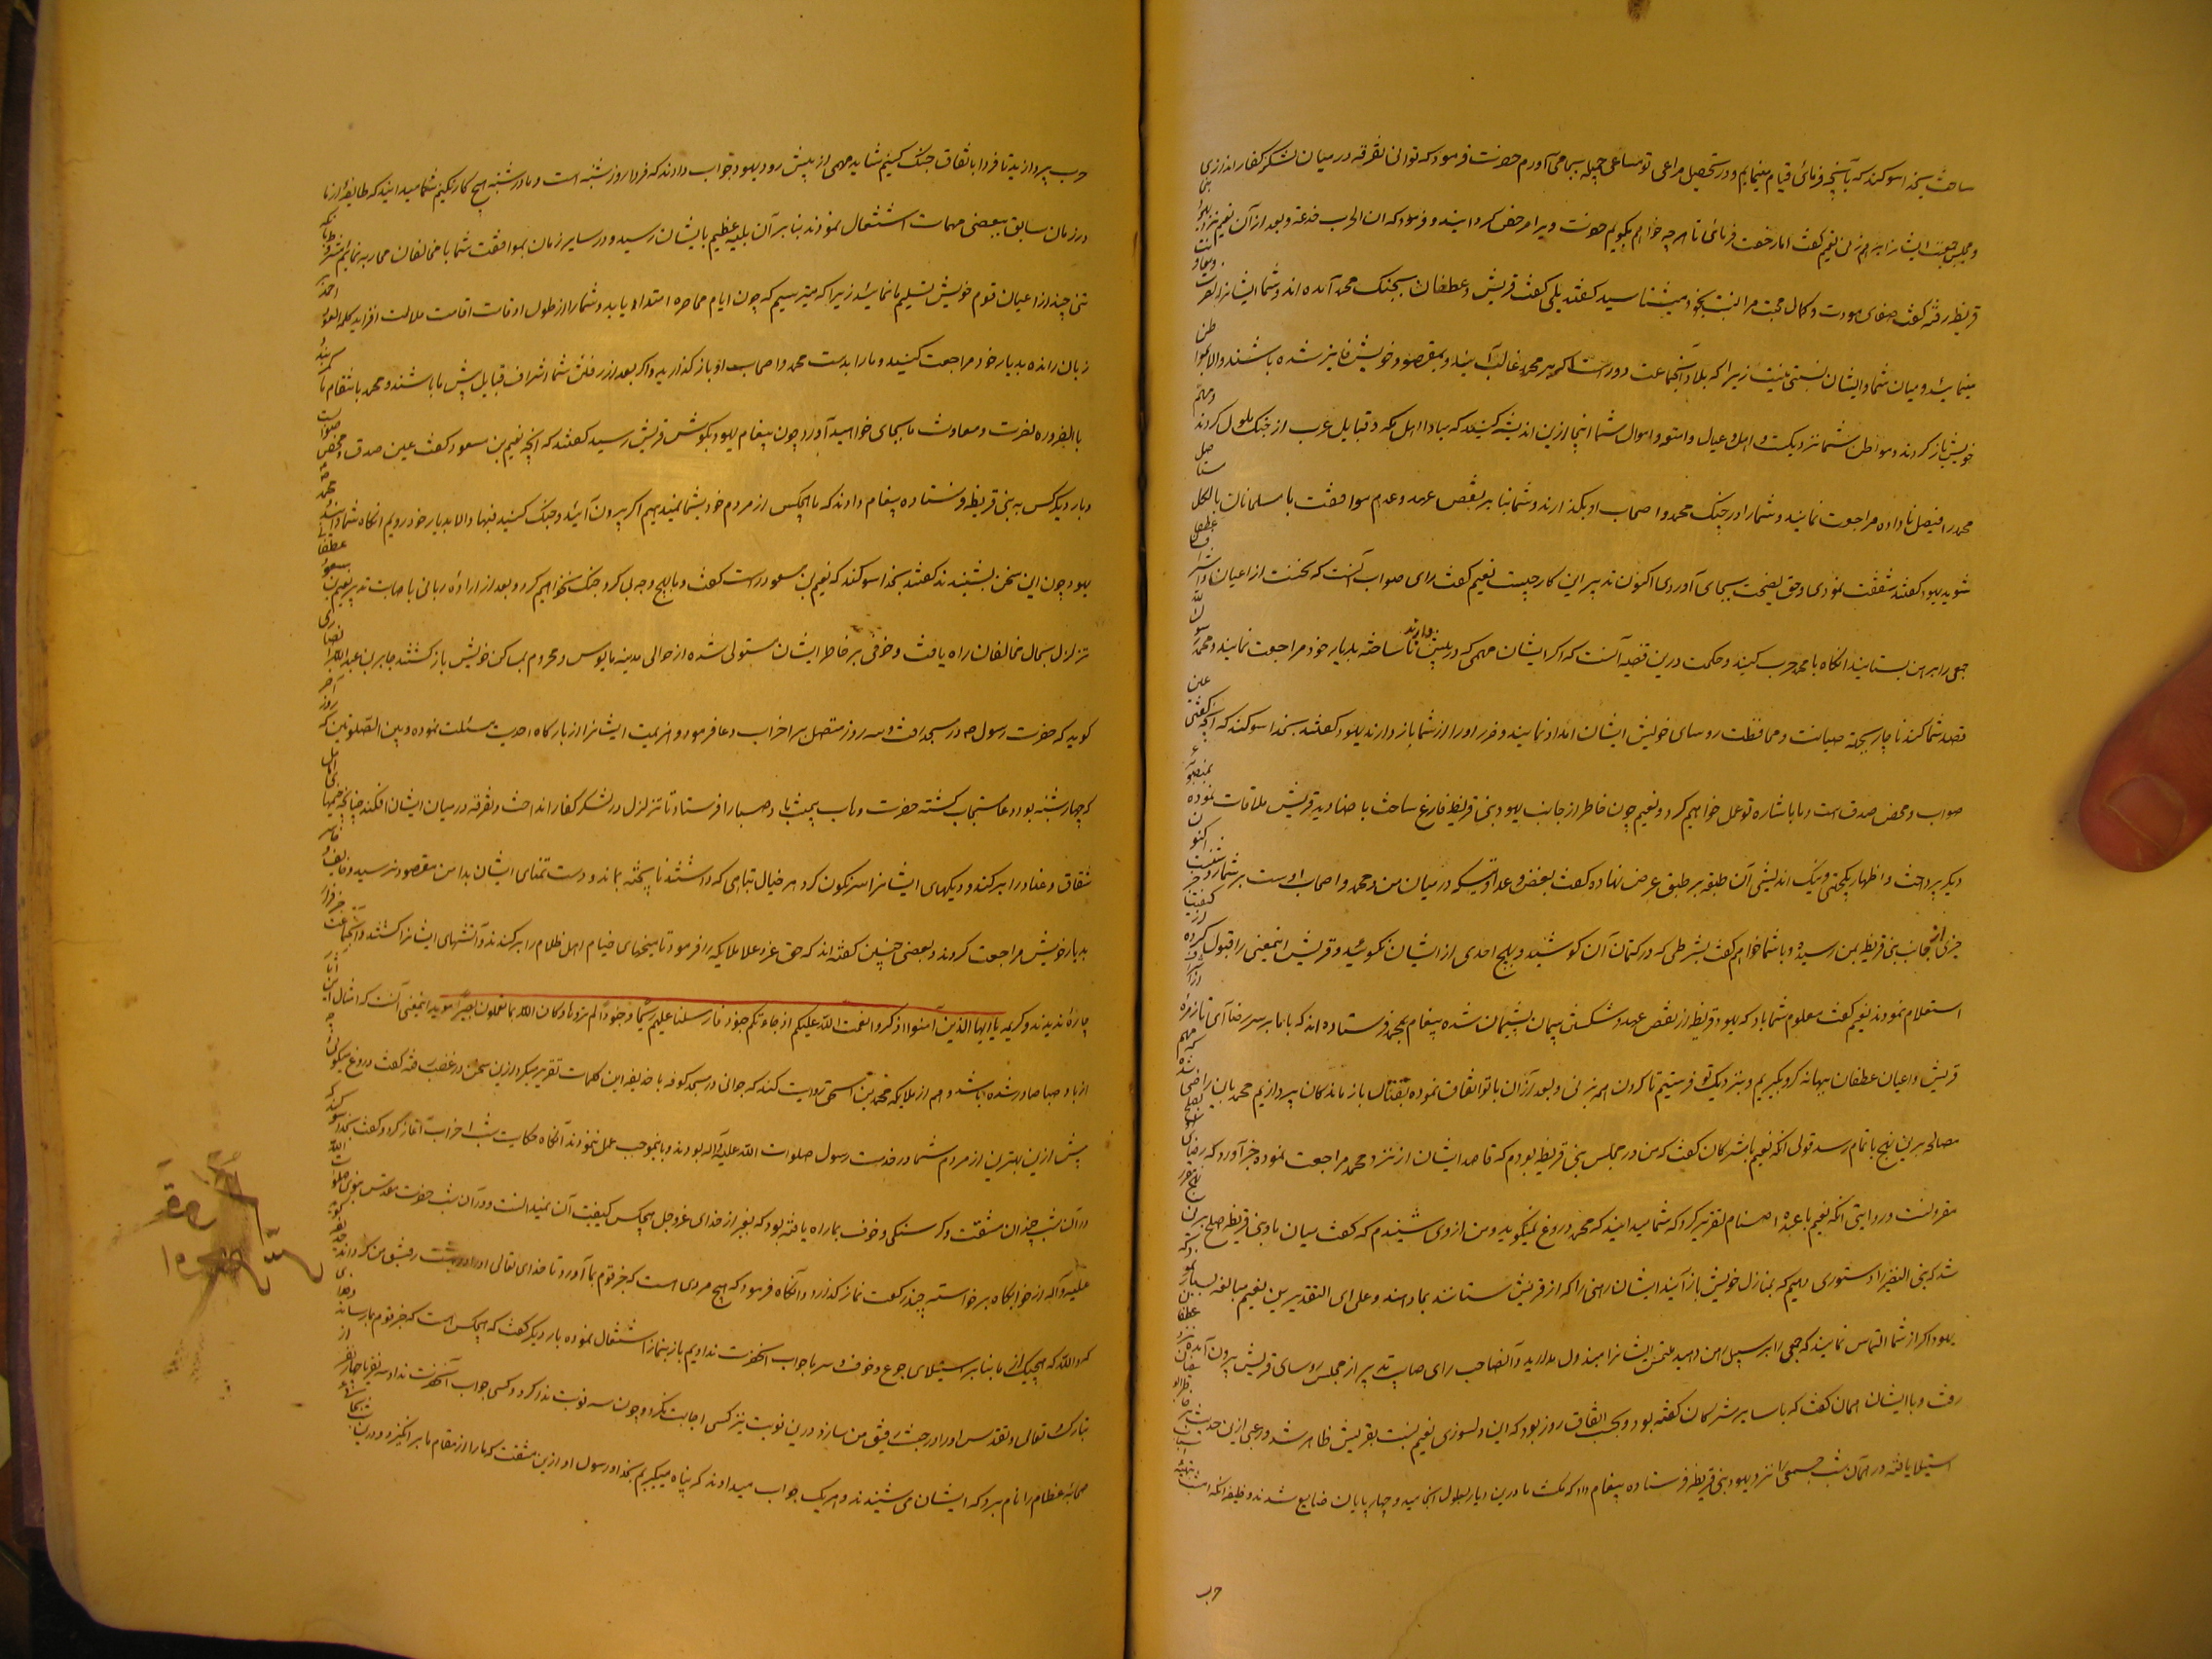 ساخت بخدا سوکند که بآنچه فرمائی قیام مینمایم و در تحصیل مراعی تو مساعی جمیله بجا می آورم حضرت فرمود که توانی تفرقه در میان لشکر کفار اندازی
نعیم کفت اما رخصت فرمائی تا هر چه خواهم بکویم حضرت ویرا مرخص کردانید و فرمود که ان الحرب خدعة و بعد از آن نعیم نزد بنی
قریظه رفته کفت صفای مودت و کمال محبت مرا نسبت بخود میشناسید کفتند بلی کفت قریش و عطفان بجنک محمد آمده اند و شما ایشانرا
مینمائید و میان شما و ایشان نسبتی نیست زیرا که بلاد آنجماعت دور است اکر بر محمد غالب آیند و بمقصود خویش فایز شده باشند والا بمواطن
خویش باز کردند و مواطن شما نزدیکست و اهل و عیال و امتعه و اموال شما اینجا ازین اندیشه کنید که مبادا اهل مکه و قبایل عرب از جنک ملول کردند و مهم
محمد را فیصل نا داده مراجعت نمایند و شما را در جنک محمد و اصحاب او بکذارند و شما بنا بر نقض عهد و عدم موافقت با مسلمانان بالکل
شوید یهود کفتند شفقت نمودی و حق نصیحت بجای آوردی اکنون تدبیر این کار چیست نعیم کفت رای صواب آنست که نخست از اعیان
جمعی را برهن بستانید انکاه با محمد حرب کنید و حکمت درین قضیه آنست که اکر ایشان مهمی که در پیش دارند ناساخته بدیار خود مراجعت نمایند و محمد
قصد شما کند ناچار بجهة صیانت و محافظت روسای خویش ایشان امداد نمایند و ضرر او را از شما باز دارند یهود کفتند بخدا سوکند که آنچه کفتی عین
صواب و محض صدق است و ما باشاره تو عمل خواهیم کرد و نعیم چون خاطر از جانب یهود بنی قریظه فارغ ساخت با صنادید قریش ملاقات نموده
دیکر پرداخت و اظهار یکجهتی و نیک اندیشی آن طبقه بر طبق عرض نهاده کفت بغض و عداوتیکه در میان من و محمد و اصحاب اوست بر شما
خبری از جانب بنی قریظه بمن رسیده و با شما خواهم کفت بشرطی که در کتمان آن کوشید و بهیچ احدی از ایشان نکوئید و قریش اینمعنی را قبول کرده
استعلام نمودند نعیم کفت معلوم شما باد که یهود قریظه از نقض عهد و شکستن پیمان پشیمان شده پیغام بمحمد فرستاده اند که با ما بر سر رضا آی تا
قریش و اعیان عطفان ببهانه کرو بکیریم و بنزدیک تو فرستیم تا کردن همه بزنی و بعد از آن با تو اتفاق نموده بقتال باز ماندکان پردازیم محمد باین راضی شد
مصالحه برین نهج باتمام رسد قولی آنکه نعیم با مشرکان کفت که من در مجلس بنی قریظه بودم که قاصد ایشان از نزد محمد مراجعت نموده خبر آورد که
و روایتی آنکه نعیم با عبده اصنام تقریر کرد که شما میدانید که محمد دروغ نمیکوید و من از وی شنیدم که کفت میان ما و بنی قریظه صلح برین
شد که بنی النضیر را دستوری دهیم که بمنازل خویش باز آیند ایشان رهنی را که از قریش ستانند بما دهند و علی ای التقدیرین نعیم مبالغه بسیار نمود
یهود اکر از شما التماس نمایند که جمعی را بر سبیل رهن دهید ملتمس ایشانرا مبذول مدارید و آنصاحب رای صایب تدبیر از مجلس روسای قریش بیرون آمده نزد
رفت و با ایشان همان کفت که با سایر مشرکان کفته بود و بحسب اتفاق روز بود که این دلسوزی نعیم نسبت بقریش ظاهر شد و رعبی ازین حدیث
استیلا یافته در همان شب جمعی را نزد یهود بنی قریظه فرستاده پیغام داد که مکث ما درین دیار بطول انجامید و چهارپایان ضایع شدند وظیفه آنکه
حرب
حرب پردازید تا فردا باتفاق جنک کنیم شاید مهمی از پیش رود یهود جواب دادند که فردا روز شنبه است و ما در شنبه هیچ کار نکنیم شما میدانید که طایفه از ما
در زمان سابق ببعضی مهمات اشتغال نمودند بنا بر آن بلیه عظیم بایشان رسید و در سایر زمان بموافقت شما با مخالفان محاربه نمائیم بشرط آنکه
تنی چند از اعیان قوم خویش تسلیم ما نمائید زیرا که میترسیم که چون ایام محاصره امتداد یابد و شما را از طول اوقات اقامت ملالت افزاید کلمه العود احمد
زبان رانده بدیار خود مراجعت کنید و ما را بدست محمد و اصحاب او باز کذارید و اکر بعد از رفتن شما اشراف قبایل پیش ما باشند و محمد بانتقام ما کمر بندد
بالضروره نصرت و معاونت ما بجای خواهید آورد چون پیغام یهود بکوش قریش رسید کفتند که آنچه نعیم بن مسعود کفت عین صدق و محض صوابست
و بار دیکر کس به بنی قریظه فرستاده پیغام دادند که ما هیچکس از مردم خود بشما نمیدهیم اکر بیرون آیند و جنک کنید فبها والا بدیار خود رویم انکاه شما دانید و محمد
یهود چون این سخن بشنیدند کفتند بخدا سوکند که نعیم بن مسعود راست کفت و ما بهیچ وجه بی کرو جنک نخواهیم کرد و بعد از اراده ربانی باصابت تدبیر نعیم بن مسعود
تزلزل بحال مخالفان راه یافت و خوفی بر خاطر ایشان مستولی شده از حوالی مدینه مایوس و محروم بمساکن خویش باز کشتند جابر بن عبدالله انصاری
کوید که حضرت رسول ص در مسجد رفت و سه روز متصل بر احزاب دعا فرمود و هزیمت ایشانرا از بارکاه احدیت مسئلت نموده و بین الصلوتین
که چهارشنبه بود دعا مستجاب کشته حضرت وهاب بیمنت باد صبا را فرستاد تا تزلزل در لشکر کفار انداخت و تفرقه در میان ایشان افکند چنانچه خیمها
شقاق و عناد را بر کند و دیکهای ایشانرا سرنکون کرد هر خیال تباهی که داشتند ناپخته بماند و دست تمنای ایشان بدامن مقصود نرسید و خایب و خاسر
بدیار خویش مراجعت کردند و بعضی چنین کفته اند که حق عز و علا ملایکه را فرمود تا میخهای خیام اهل ظلام را بر کندند و آتشهای ایشانرا کشتند و آنجماعت جز فرار
چاره ندیدند و کریمه یا ایها الذین آمنوا اذکروا نعمت الله علیکم اذ جاءتکم جنود فارسلنا علیهم ریحا و جنودا لم تروها و کان الله بما تعملون بصیرا مؤید اینمعنی آنست که امثال این
از باد صبا صادر شده باشد و هم از ملایکه محمد بن اسحق روایت کند که جوانی در مسجد کوفه با حذیفه این کلمات تقریر میکرد ازین سخن در غضب رفته کفت دروغ میکوئی
پیش ازین بهترین از مردم شما در خدمت رسول صلوات الله علیه و آله بودند و باینموجب عمل ننمودند آنکاه حکایت شب احزاب آغاز کرد و کفت بخدا سوکند که
در آن شب چندان مشقت و کرسنکی و خوف بما راه یافته بود که بغیر از خدای عز و جل هیچکس کیفیت آن نمیدانست و در آن شب حضرت مقدس نبوی صلوات الله
علیه و آله از خوابکاه برخواسته چند رکعت نماز کذارد و آنکاه فرمود که هیچ مردی است که خبر قوم بما آورد تا خدای تعالی او را در بهشت رفیق من کرداند
که والله که هیچیک از ما بنا بر استیلای جوع و خوف و سرما جواب انحضرت ندادیم باز بنماز اشتغال نموده بار دیکر کفت که هیچکس است که خبر قوم بما رساند
تبارک و تعالی و تقدس او را در جنت رفیق من سازد درین نوبت نیز کسی اجابت نکرد و چون سه نوبت ندا کرد و کسی جواب آنحضرت نداد
صحابه عظام را نام ببرد که ایشان می شنیدند و هر یک جواب میدادند که پناه میکیریم بخدا و رسول او ازین مشقت که ما را از مقام ما بر انکیزد و درین